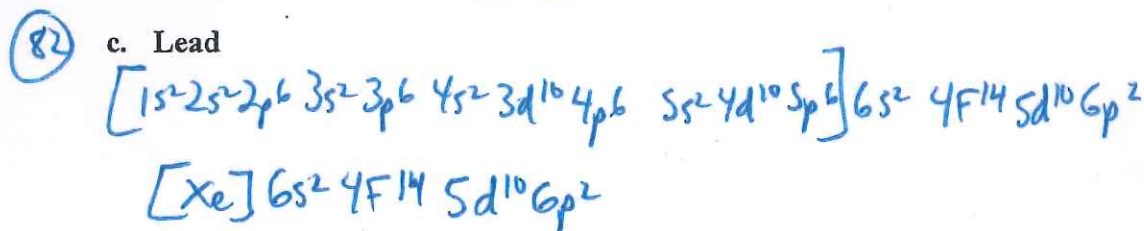 82 c. Lead
[1s²2s²2p⁶ 3s² 3p⁶ 4s² 3d¹⁰ 4p⁶ 5s² 4d¹⁰ 5p⁶] 6s² 4F¹⁴ 5d¹⁰ 6p²
[Xe] 6s² 4F¹⁴ 5d¹⁰ 6p²